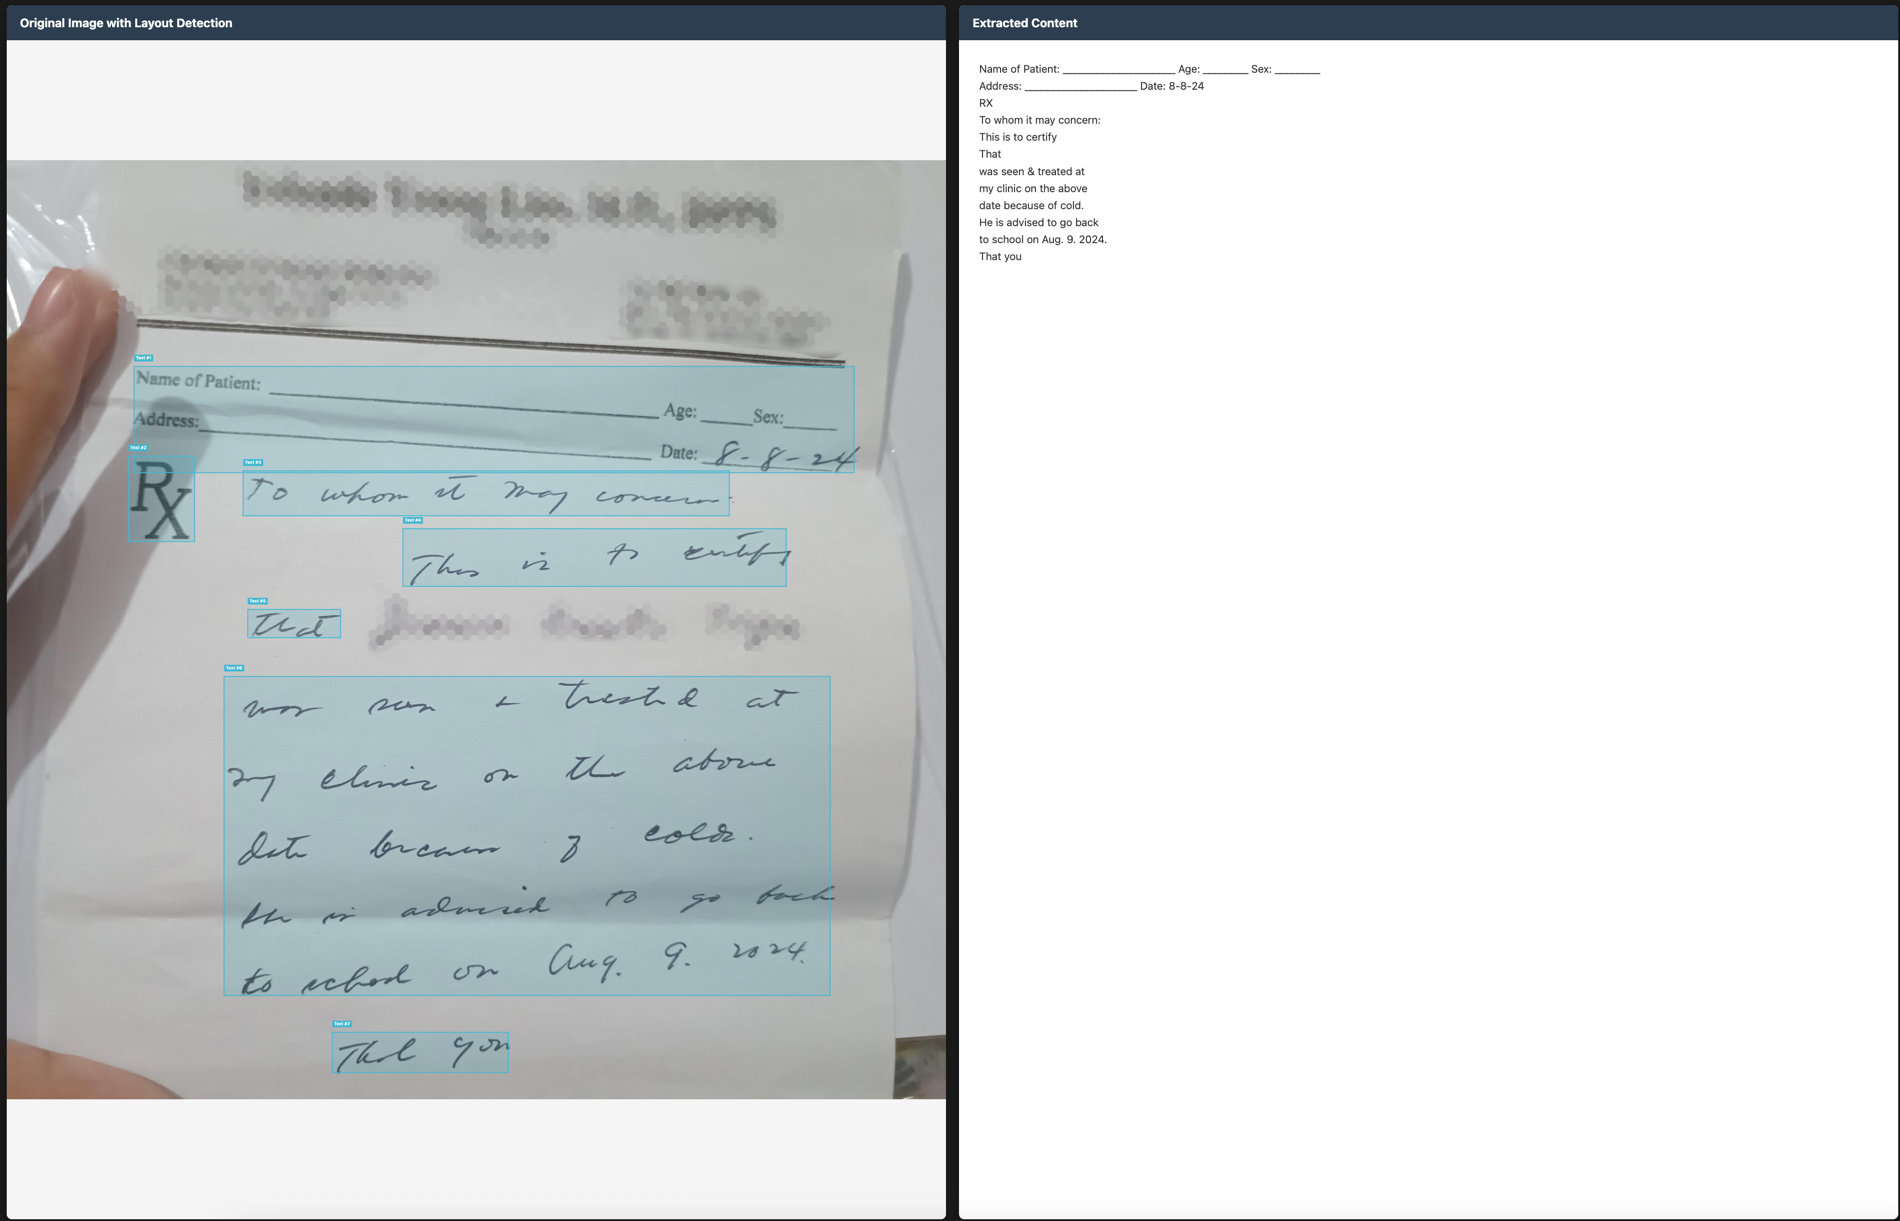 Original Image with Layout Detection
Text #1
Name of Patient: ____ Age: ____ Sex: ____
Address: ____ Date: 8-8-24
Text #2
Rx
Text #3
To whom it may concern:
Text #4
This is to certify
Text #5
that
Text #6
was seen & treated at
my clinic on the above
date because of colds.
He is advised to go back
to school on Aug. 9. 2024.
Text #7
Thank you
Extracted Content
Name of Patient: ____________________ Age: ________ Sex: ________
Address: ____________________ Date: 8-8-24
RX
To whom it may concern:
This is to certify
That
was seen & treated at
my clinic on the above
date because of cold.
He is advised to go back
to school on Aug. 9. 2024.
That you